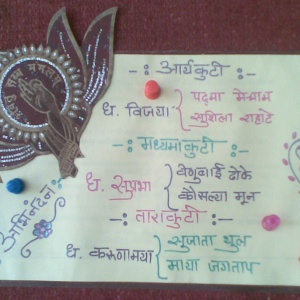 -: आर्यकुटी :-
ध. विजया { पद्मा मेश्राम
सुशिला राहाटे
-: मध्यमाकुटी :-
ध. सुप्रभा { वेणुबाई ढोके
कौसल्या मून
-: ताराकुटी :-
ध. करुणामया { सुजाता थुल
माया जगताप
अभिनंदन